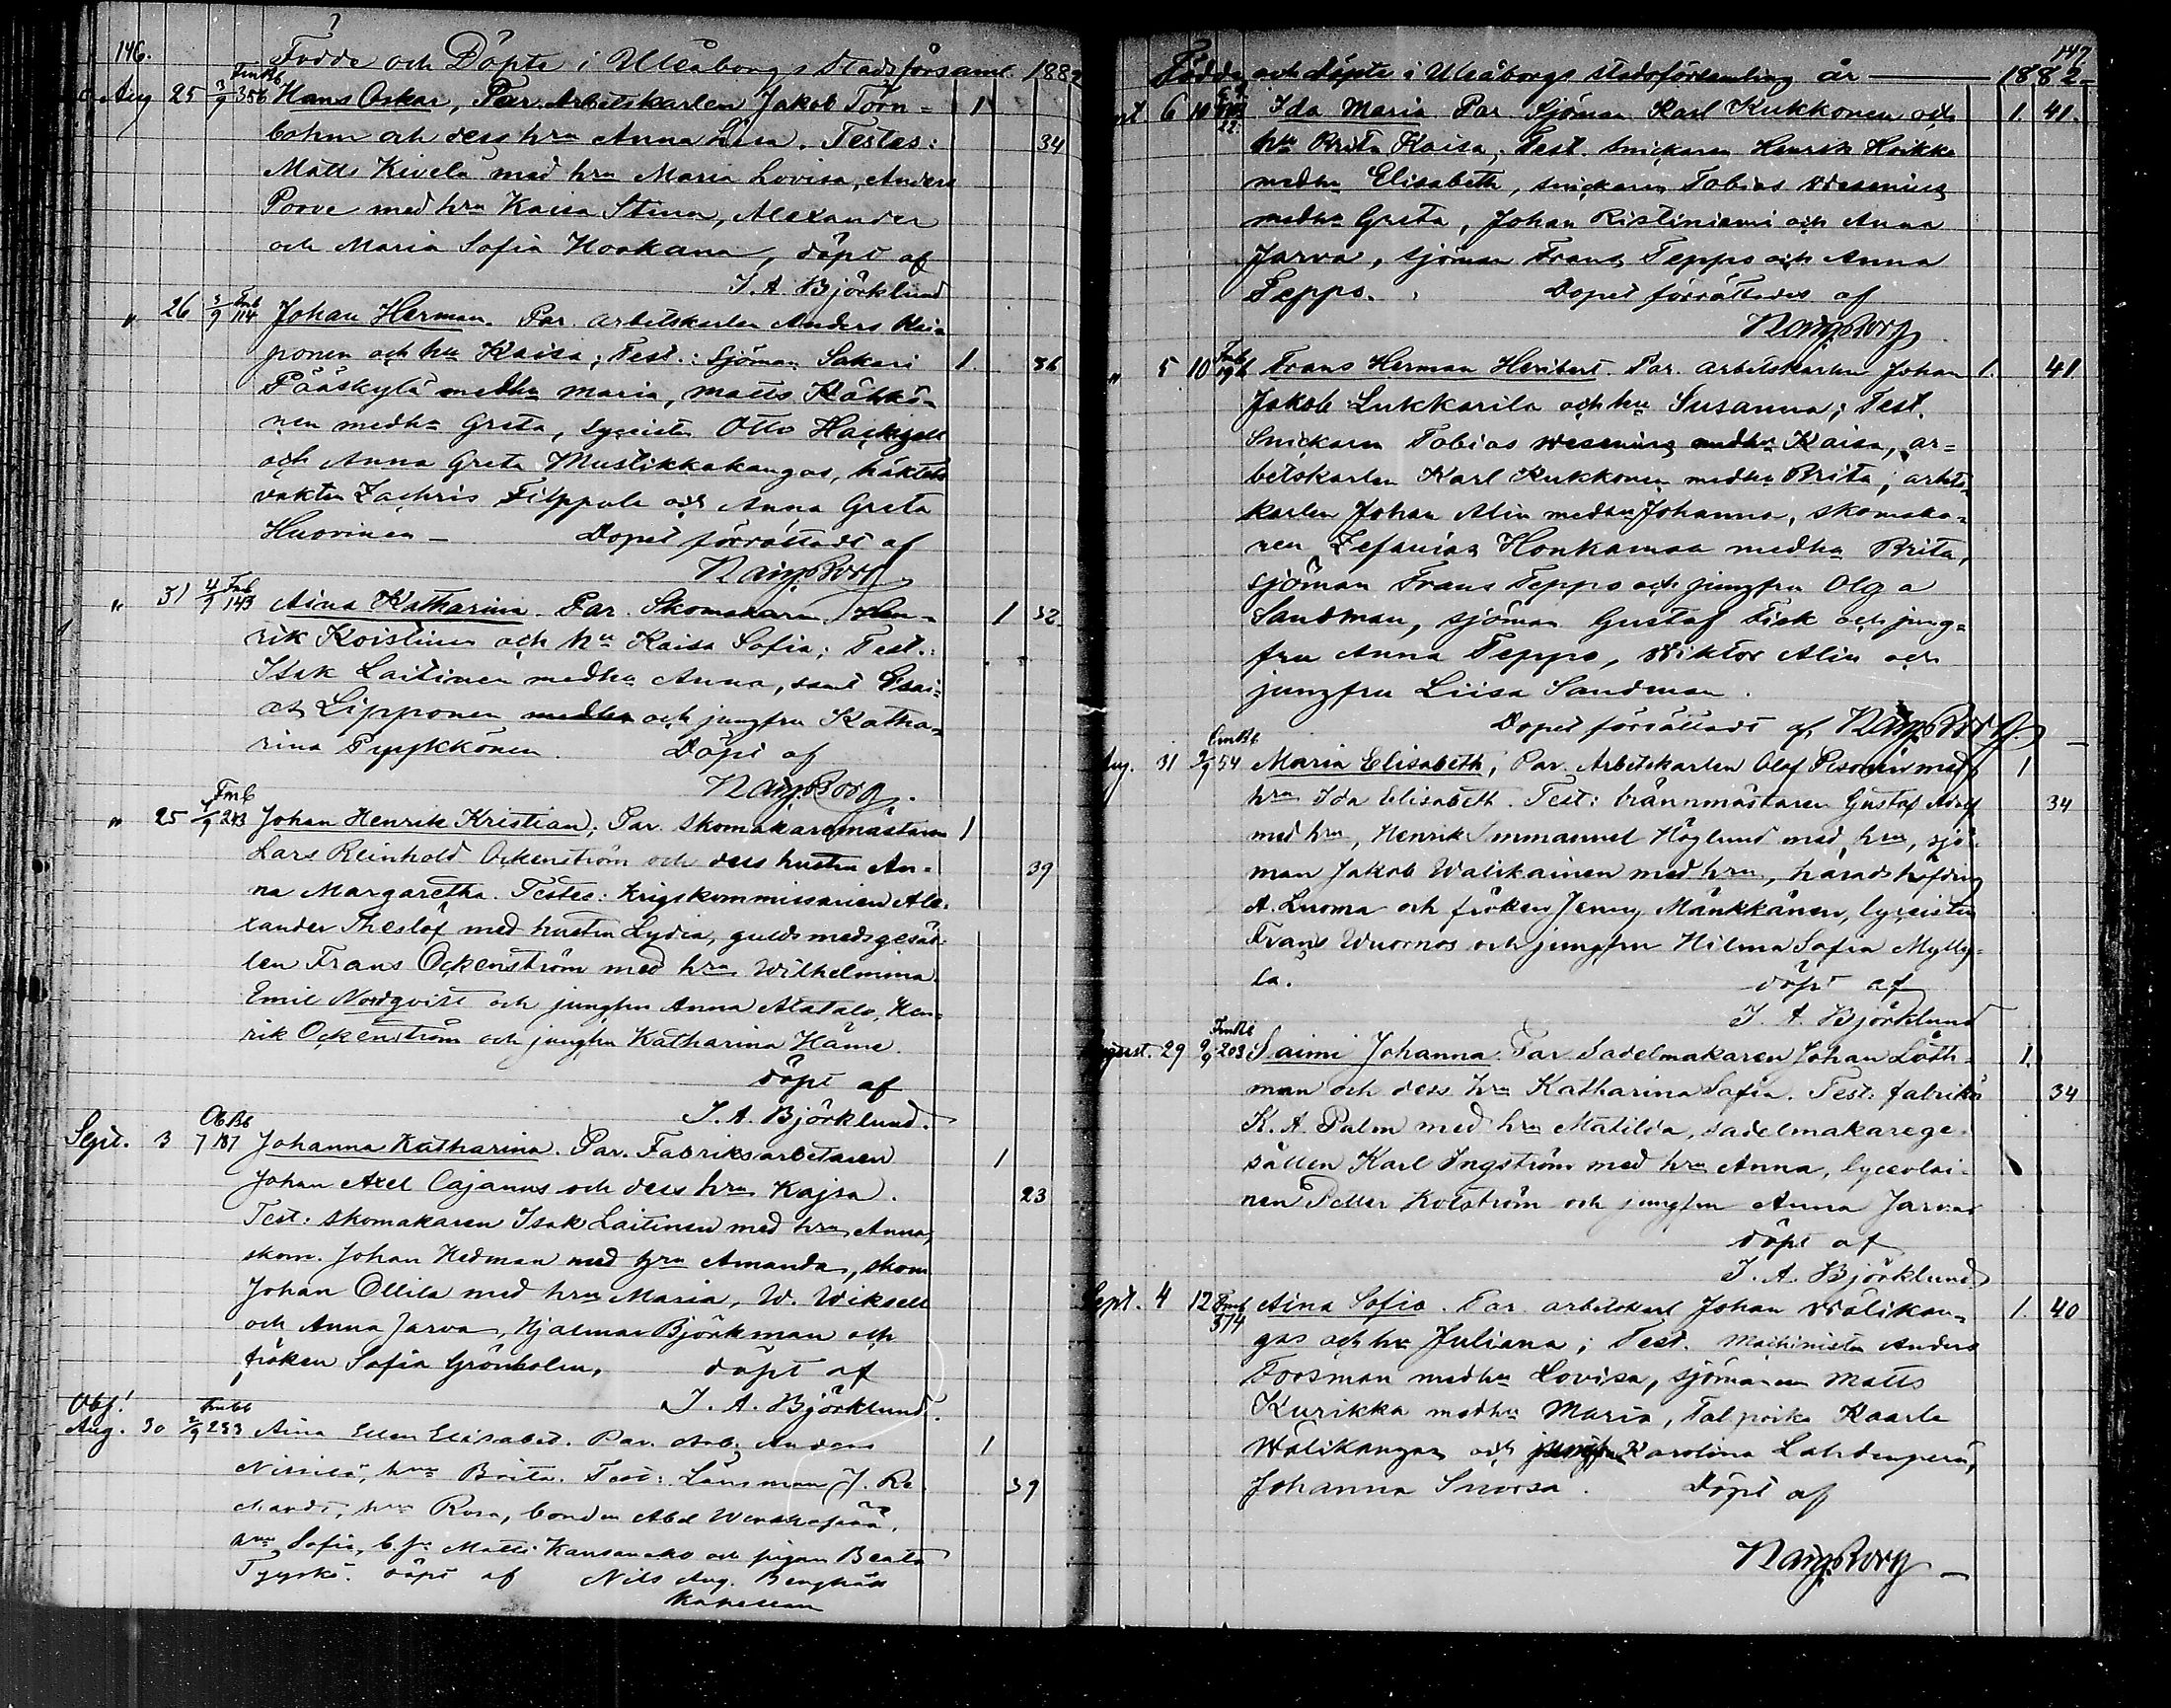 146.
Födde och Döpte i Uleåborgs stadsförsaml. 1882
Aug 25 3/9 FmBb 356 Hans Oskar, Par. Arbetskarlen Jakob Törn- 1
bohm och dess hru Anna Lisa. Testes: 34
Matts Kivelä med hru Maria Lovisa, Anders
Poove med hru Kaisa Stina, Alexander
och Maria Sofia Hookana, döpt af
J. A. Björklund
" 26 3/9 Fmb 114 Johan Herman. Par. arbetskarlen Anders Kai-
ponen och hu Kaisa; Test.: Sjöman Sakari 1. 36
Pääskylä medhu Maria, Matts Kähkö-
nen medhu Greta, Lyceisten Otto Hackzell
och Anna Greta Mustikkakangas, häktets
vakten Zachris Filppula och Anna Greta
Huovinen — Dopet förrättadt af
" 31 4/9 Fmb 143 Aina Katharina. Par. Skomakaren Hen- 1 32
rik Koistinen och hu Kaisa Sofia; Test.:
Isak Laitinen medhu Anna, samt Esai-
as Lipponen medhu och jungfru Katha-
rina Pyykkönen. Döpt af
" 25 4/9 Fmb 243 Johan Henrik Kristian; Par. skomakaremästaren 1
Lars Reinhold Ockenström och dess hustru An- 39
na Margaretha. Testes: Krigskommissarien Ale-
xander Theslöf med hustru Lydia, guldsmedsgesäl-
len Frans Ockenström med hru Wilhelmina
Emil Nordqvist och jungfru Anna Alatalo, Hen-
rik Ockenström och jungfru Katharina Häme.
döpt af
J. A. Björklund.
Sept. 3 7 ObBb 187 Johanna Katharina. Par. Fabriksarbetaren 1
Johan Axel Cajanus och dess hru Kajsa. 23
Test: skomakaren Isak Laitinen med hru Anna,
skom. Johan Hedman med hru Amanda, skom
Johan Ollila med hru Maria, W. Wiksell
och Anna Jarva, Hjalmar Björkman och
fröken Sofia Grönholm, döpt af
J. A. Björklund.
Obs!
Aug. 30 2/9 233 Aina Ellen Elisabet. Par. Arb. Anders 1
Nissilä, hru Brita. Test: Länsman J. Re 39
hru Rosa, bonden Abel
hru Sofia, Matts Kansanaho och pigan Beata
Tyyskä. döpt af Nils Aug.
Kapellan
147
Födde och döpte i Uleåborgs stadsförsamling år — 1882
6 10 22. Ida Maria Par. Sjöman Karl Kukkonen och 1. 41.
hu Brita Kaisa; Test. Snickaren Henrik Heikka
medhu Elisabeth, snickaren Tobias Wesenius
medhu Greta, Johan Ristiniemi och Anna
Jarva, sjöman Frans Teppo och Anna
Teppo. Dopet förrättades af
" 5 10 Fmb 196 Frans Herman Heribert. Par. arbetskarlen Johan 1. 41
Jakob Lukkarila och hu Susanna; Test.
Snickaren Tobias Wesenius medhu Kaisa, ar-
betskarlen Karl Kukkonen medhu Brita; arbets-
karlen Johan Alin medhu Johanna, skomaka-
ren Zefanias Honkamaa medhu Brita,
sjöman Frans Teppo och jungfru Olga
Sandman, sjöman Gustaf Fisk och jung-
fru Anna Teppo, Wiktor Alin och
jungfru Liisa Sandman.
Dopet förrättadt af
Aug. 31 9/9 54 Maria Elisabeth, Par. Arbetskarlen Olof Pesonen med 1
hru Ida Elisabeth. Test: brännmästaren Gustaf Adolf 34
med hru, Henrik Immanuel Höglund med hru, sjö-
man Jakob Walikainen med hru, häradshöfding
A. Luoma och fröken Jenny Månkkänen, lyceisten
Frans Wuornos och jungfru Hilma Sofia Mylly-
la. döpt af
J. A. Björklund
August. 29 9/9 FmBb 203 Saimi Johanna. Par. Sadelmakaren Johan Löth- 1.
man och dess hru Katharina Sofia. Test: fabrikör 34
K. A. Palm med hru Matilda, sadelmakarege-
sällen Karl Ingström med hru Anna, lyceolai-
nen Petter Holström och jungfru Anna Jarva
döpt af
J. A. Björklund
Sept. 4 12 Fmb 374 Aina Sofia. Par. arbetskarl Johan Wälikan- 1. 40
gas och hu Juliana; Test. Machinisten Anders
Forsman medhu Lovisa, sjömannen Matts
Kurikka medhu Maria, Talpoika Kaarle
Wälikangas och jungfru Karolina Lahdenperä,
Johanna Snorsa. Döpt af